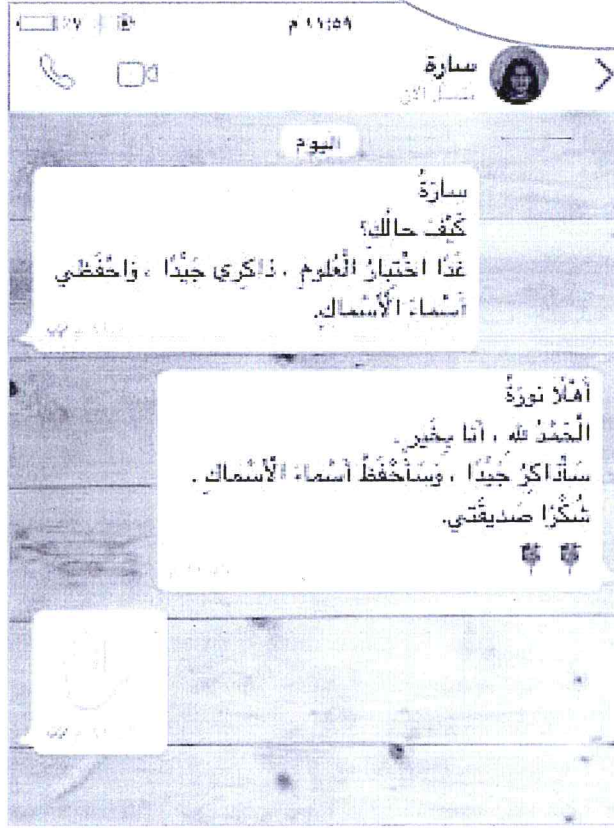 ١١:٥٩ م
سارة
متصل الآن
اليوم
سارَةُ
كَيْفَ حالُكِ؟
غَدًا اخْتِبارُ الْعُلومِ ، ذاكِري جَيِّدًا ، وَاحْفَظي
أَسْماءَ الْأَسْماكِ.
أَهْلًا نورَةُ
الْحَمْدُ لله ، أَنا بِخَيرٍ .
سَأُذاكِرُ جَيِّدًا ، وَسَأَحْفَظُ أَسْماءَ الْأَسْماكِ .
شُكْرًا صَديقَتي.